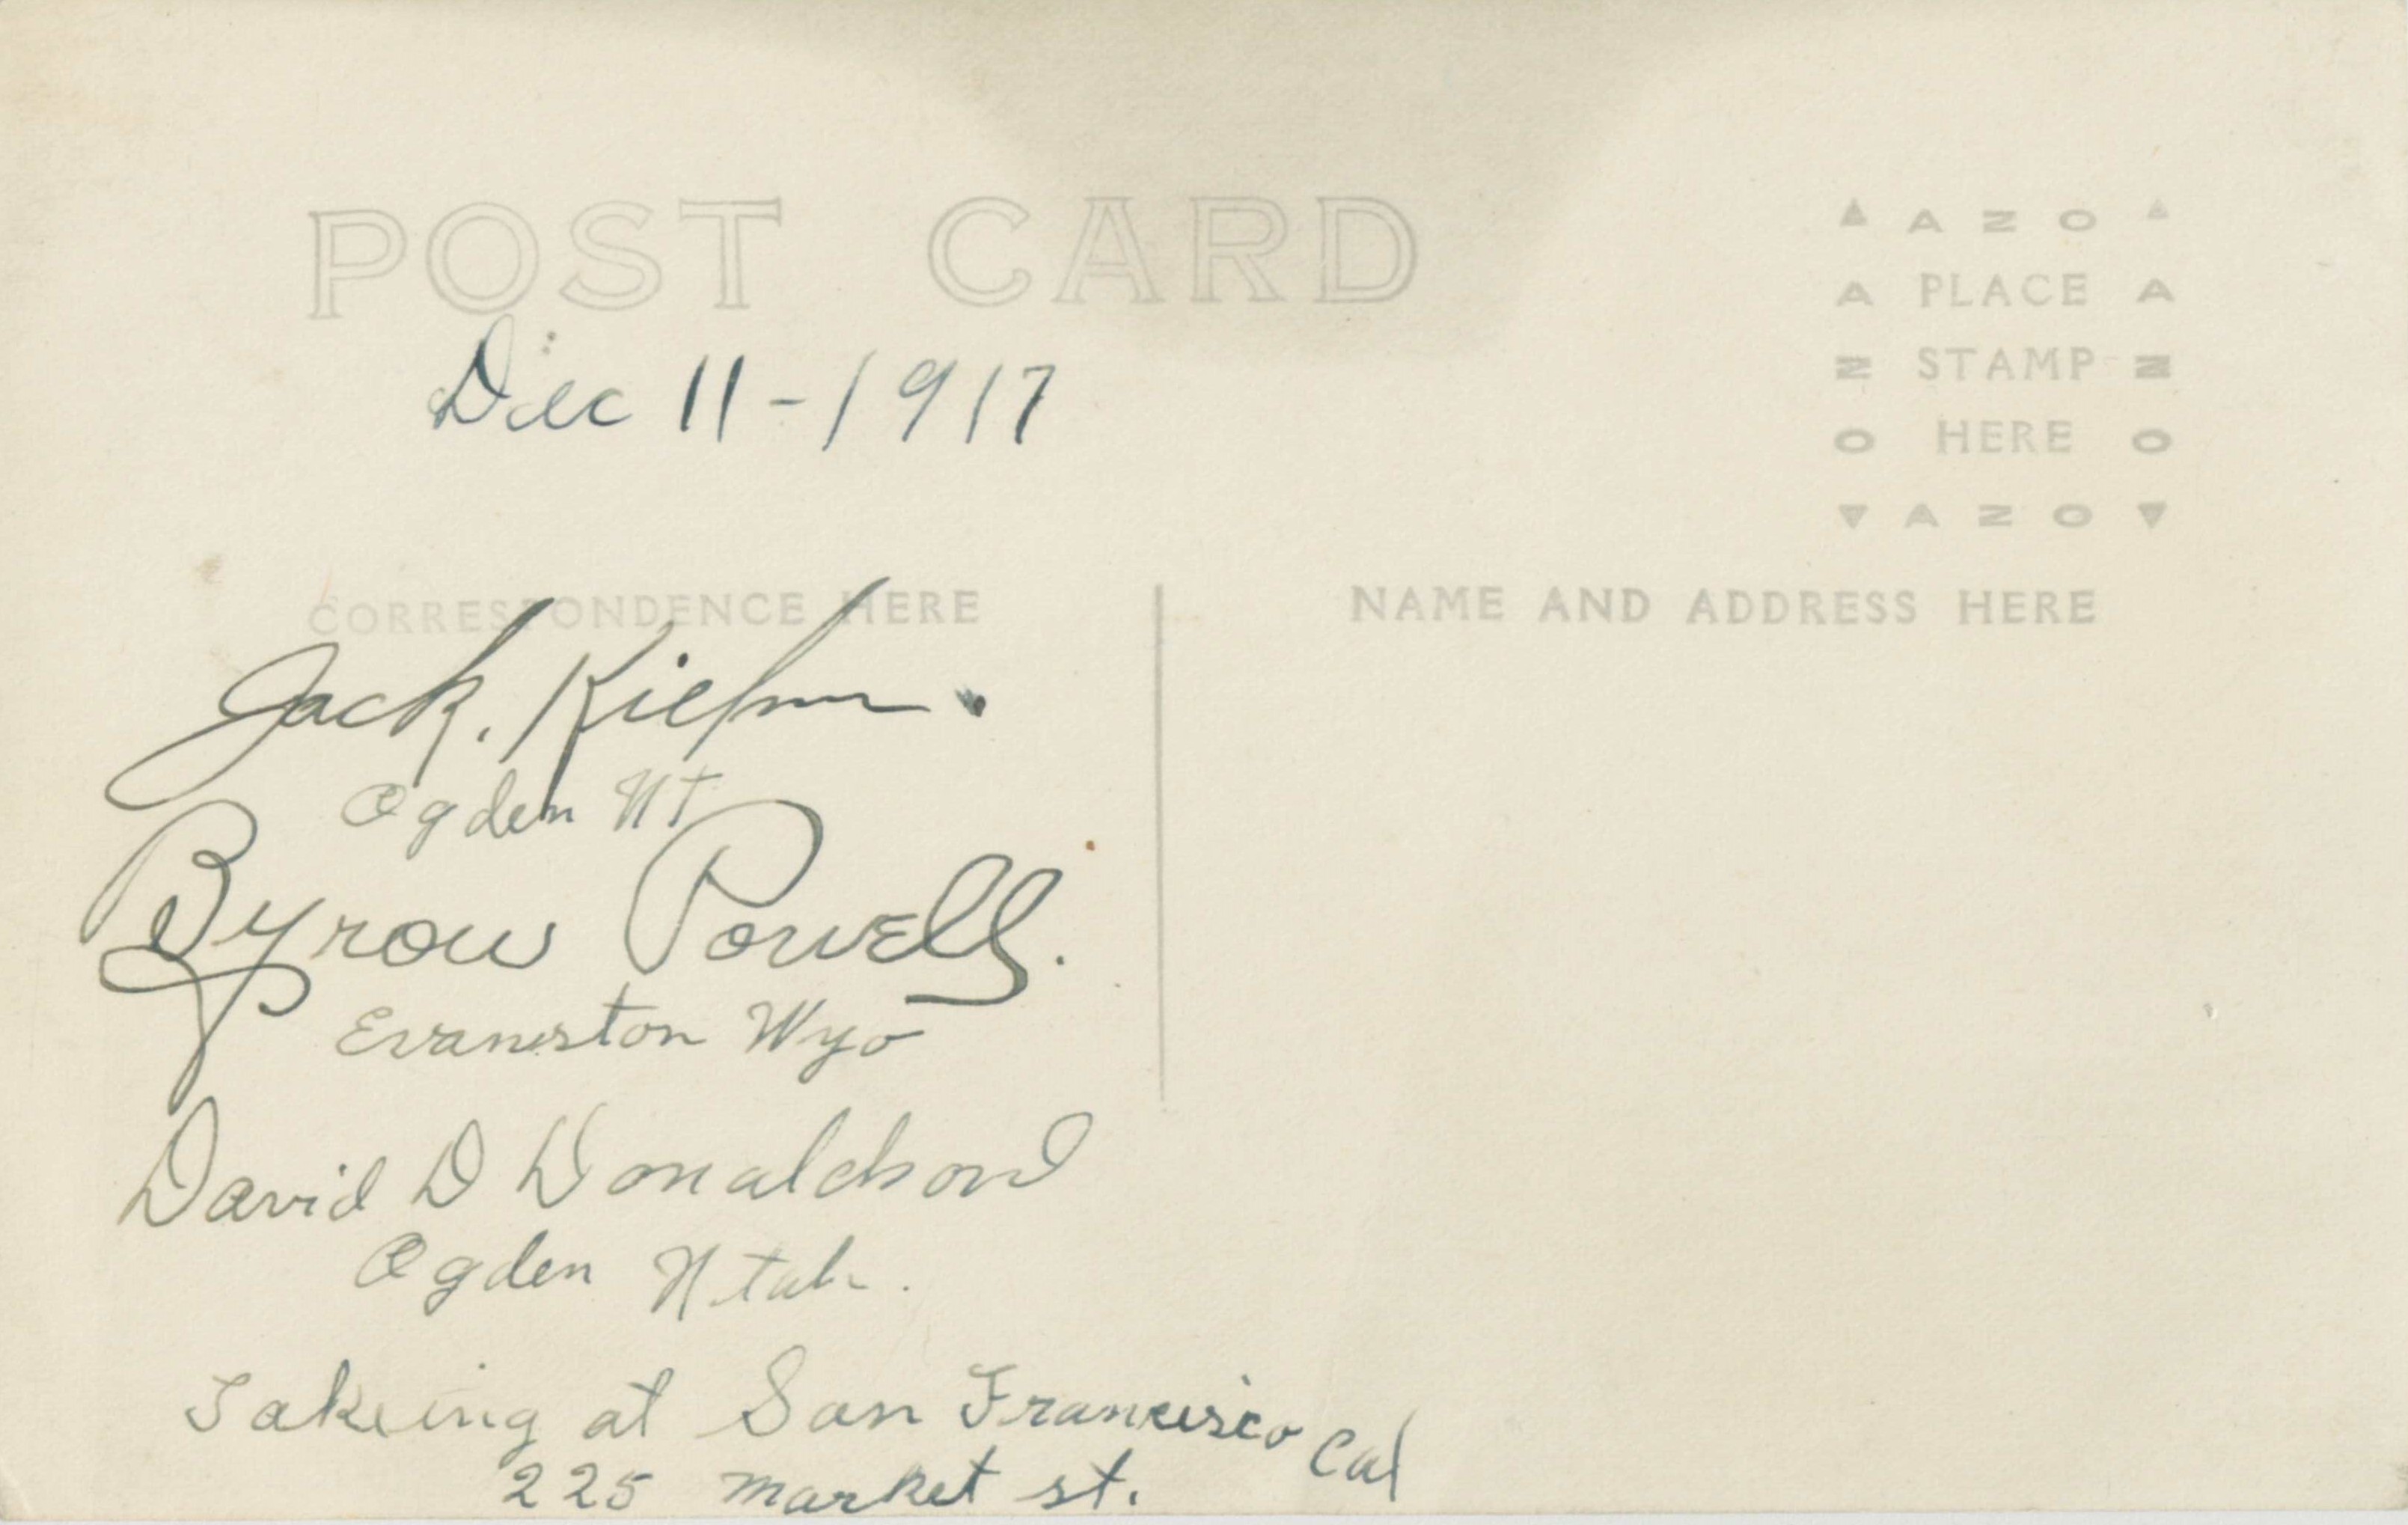 POST CARD
Dec 11-1917
AZO
A PLACE A
N STAMP N
O HERE O
AZO
CORRESPONDENCE HERE
NAME AND ADDRESS HERE
Jack.
Ogden Ut
Byrow Powell.
Evanston Wyo
David D Donaldson
Ogden Utah.
Takeing at San Francisco Cal
225 Market st.